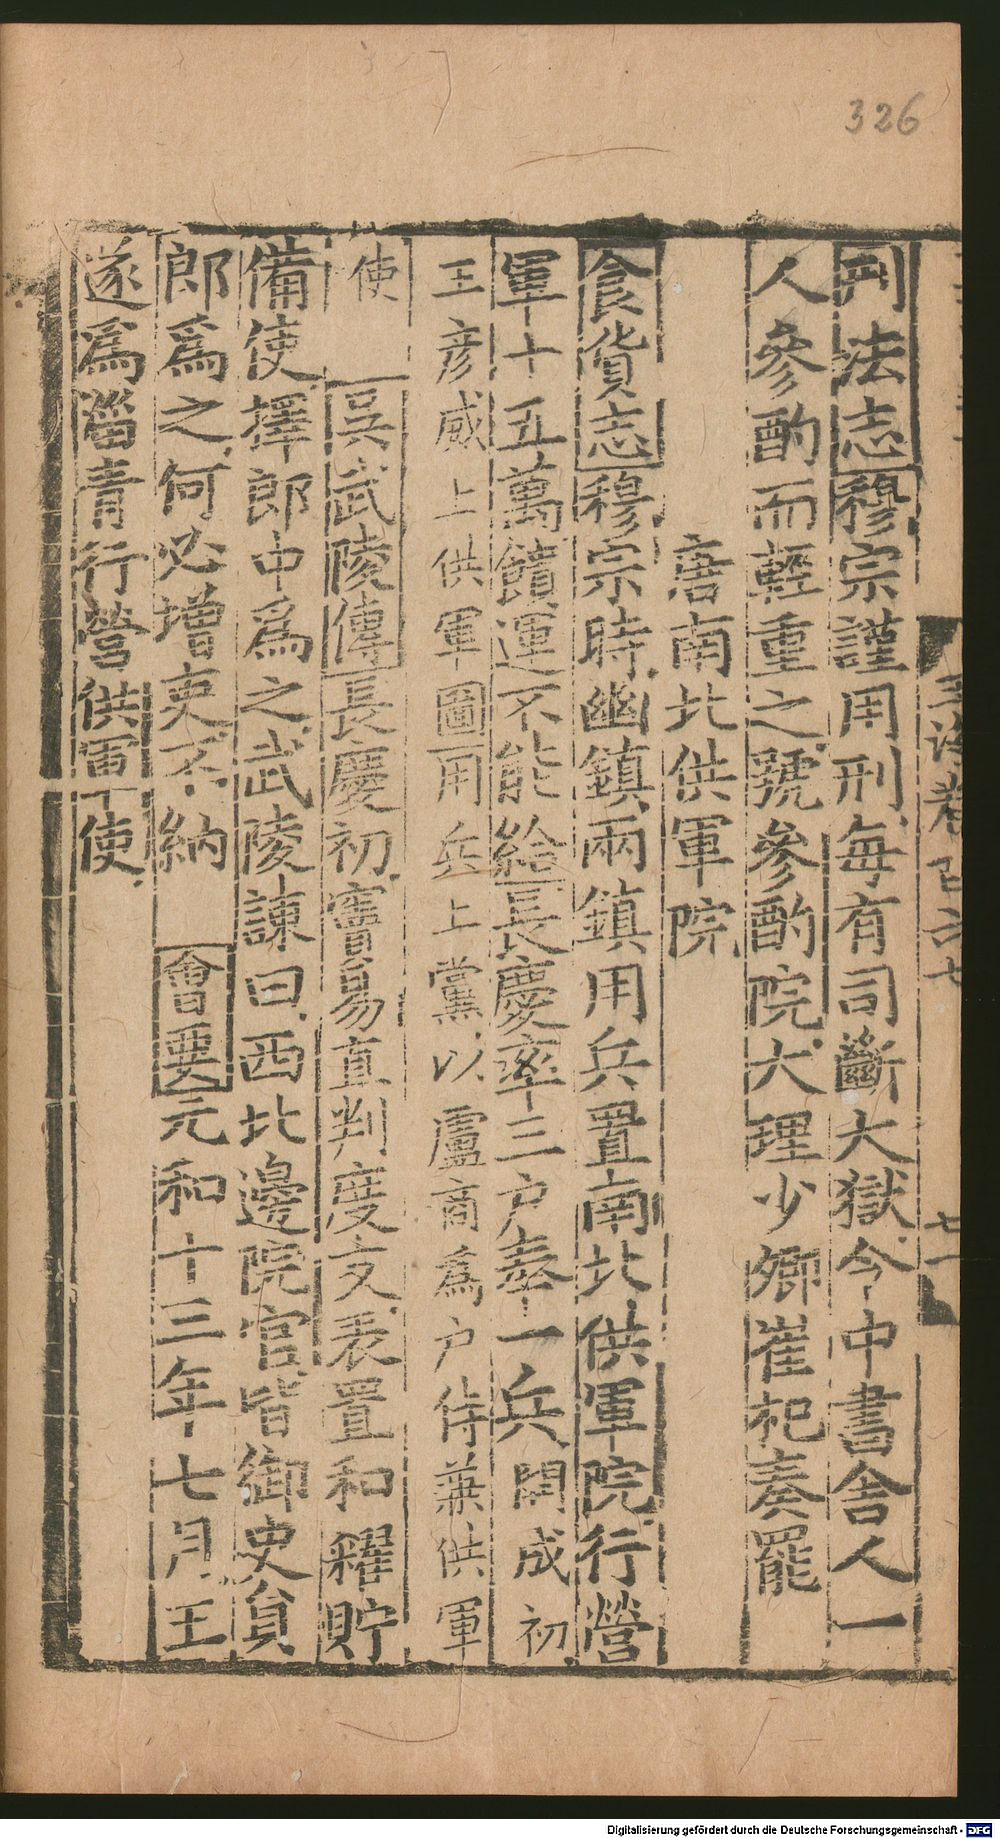 326
刑法志穆宗謹用刑每有司斷大獄令中書舍人一
人參酌而輕重之號參酌院大理少卿崔杞奏罷
唐南北供軍院
食貨志穆宗時幽鎮兩鎮用兵置南北供軍院行營
軍十五萬饋運不能給長慶率三戶奉一兵開成初
王彥威上供軍圖用兵上黨以盧商為戶侍兼供軍
使 吳武陵傳長慶初竇易直判度支表置和糴貯
備使擇郎中爲之武陵諫曰西北邊院官皆御史員
郎爲之何必增吏不納 會要元和十三年七月王
遂爲淄青行營供軍使
玉海卷百六七
七一
Digitalisierung gefördert durch die Deutsche Forschungsgemeinschaft - DFG